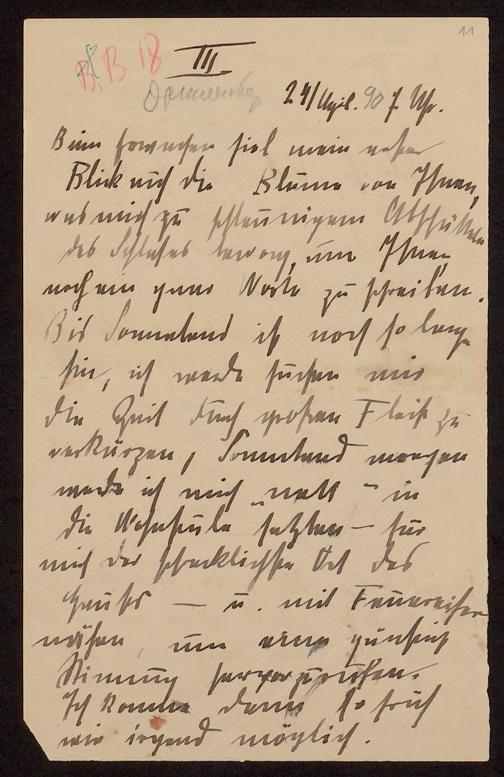 11
B 18
III
Donnerstag
24/April. 90 7. Uhr.
Beim Erwachen fiel mein erster
Blick auf die Blume von Ihnen,
was mich zu schleunigem Abschütteln
des Schlafes bewog, um Ihnen
noch ein paar Worte zu schreiben.
Bis Sonnabend ist noch so lange
hin, ich werde suchen mir
die Zeit durch großen Fleiß zu
verkürzen, Sonnabend morgen
werde ich mich "nett" in
die setzten – für
mich der schrecklichste Ort des
Hauses – u. mit Feuereifer
nähen, um eine günstige
Stimmung hervorzurufen.
Ich komme dann so früh
wie irgend möglich.